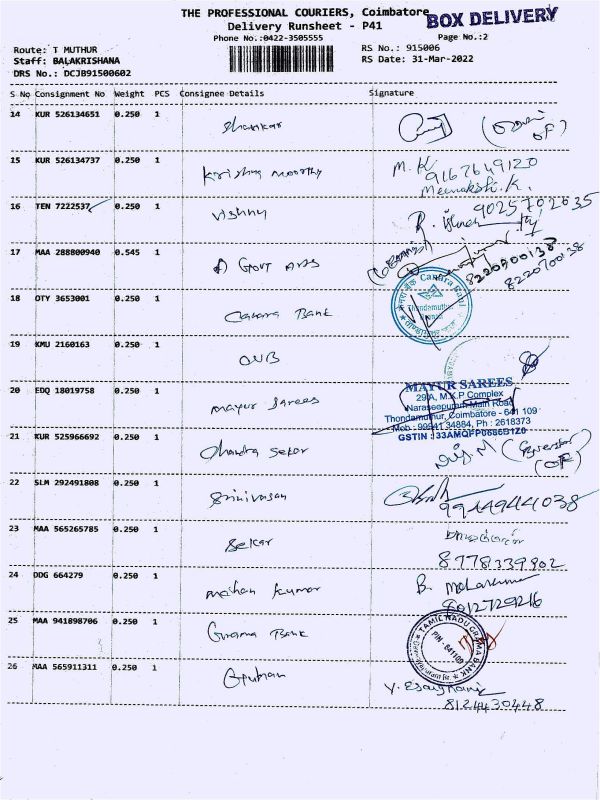 THE PROFESSIONAL COURIERS, Coimbatore
BOX DELIVERY
Delivery Runsheet - P41
Phone No.:0422-3505555
Page No.:2
Route: T MUTHUR
RS No.: 915006
Staff: BALAKRISHANA
RS Date: 31-Mar-2022
DRS No.: DCJB91500602
S No Consignment No Weight PCS Consignee Details Signature
14 KUR 526134651 0.250 1 Shankar
15 KUR 526134737 0.250 1 Krishna moorthy M. K
9167649120
Meenakshi.K.
16 TEN 7222537 0.250 1 Vishnu
9025702635
17 MAA 288800940 0.545 1 Govt
8220700138
18 OTY 3653001 0.250 1 Canara Bank
Canara Bank
19 KMU 2160163 0.250 1
20 EDQ 18019758 0.250 1 mayur Sarees
MAYUR SAREES
29/A, M.K.P Complex
Naraseepuram Main Road
Thondamuthur, Coimbatore - 641 109
Mob : 99941 34884, Ph : 2618373
GSTIN : 33AMQFP0686B1Z0
21 KUR 525966692 0.250 1 Chandra Sekar
22 SLM 292491808 0.250 1 Srinivasan
9944944038
23 MAA 565265785 0.250 1 Sekar
8778339902
24 DDG 664279 0.250 1 mohan kumar
9012729216
25 MAA 941898706 0.250 1 Grama Bank
TAMIL NADU GRAMA BANK
26 MAA 565911311 0.250 1
8124430448